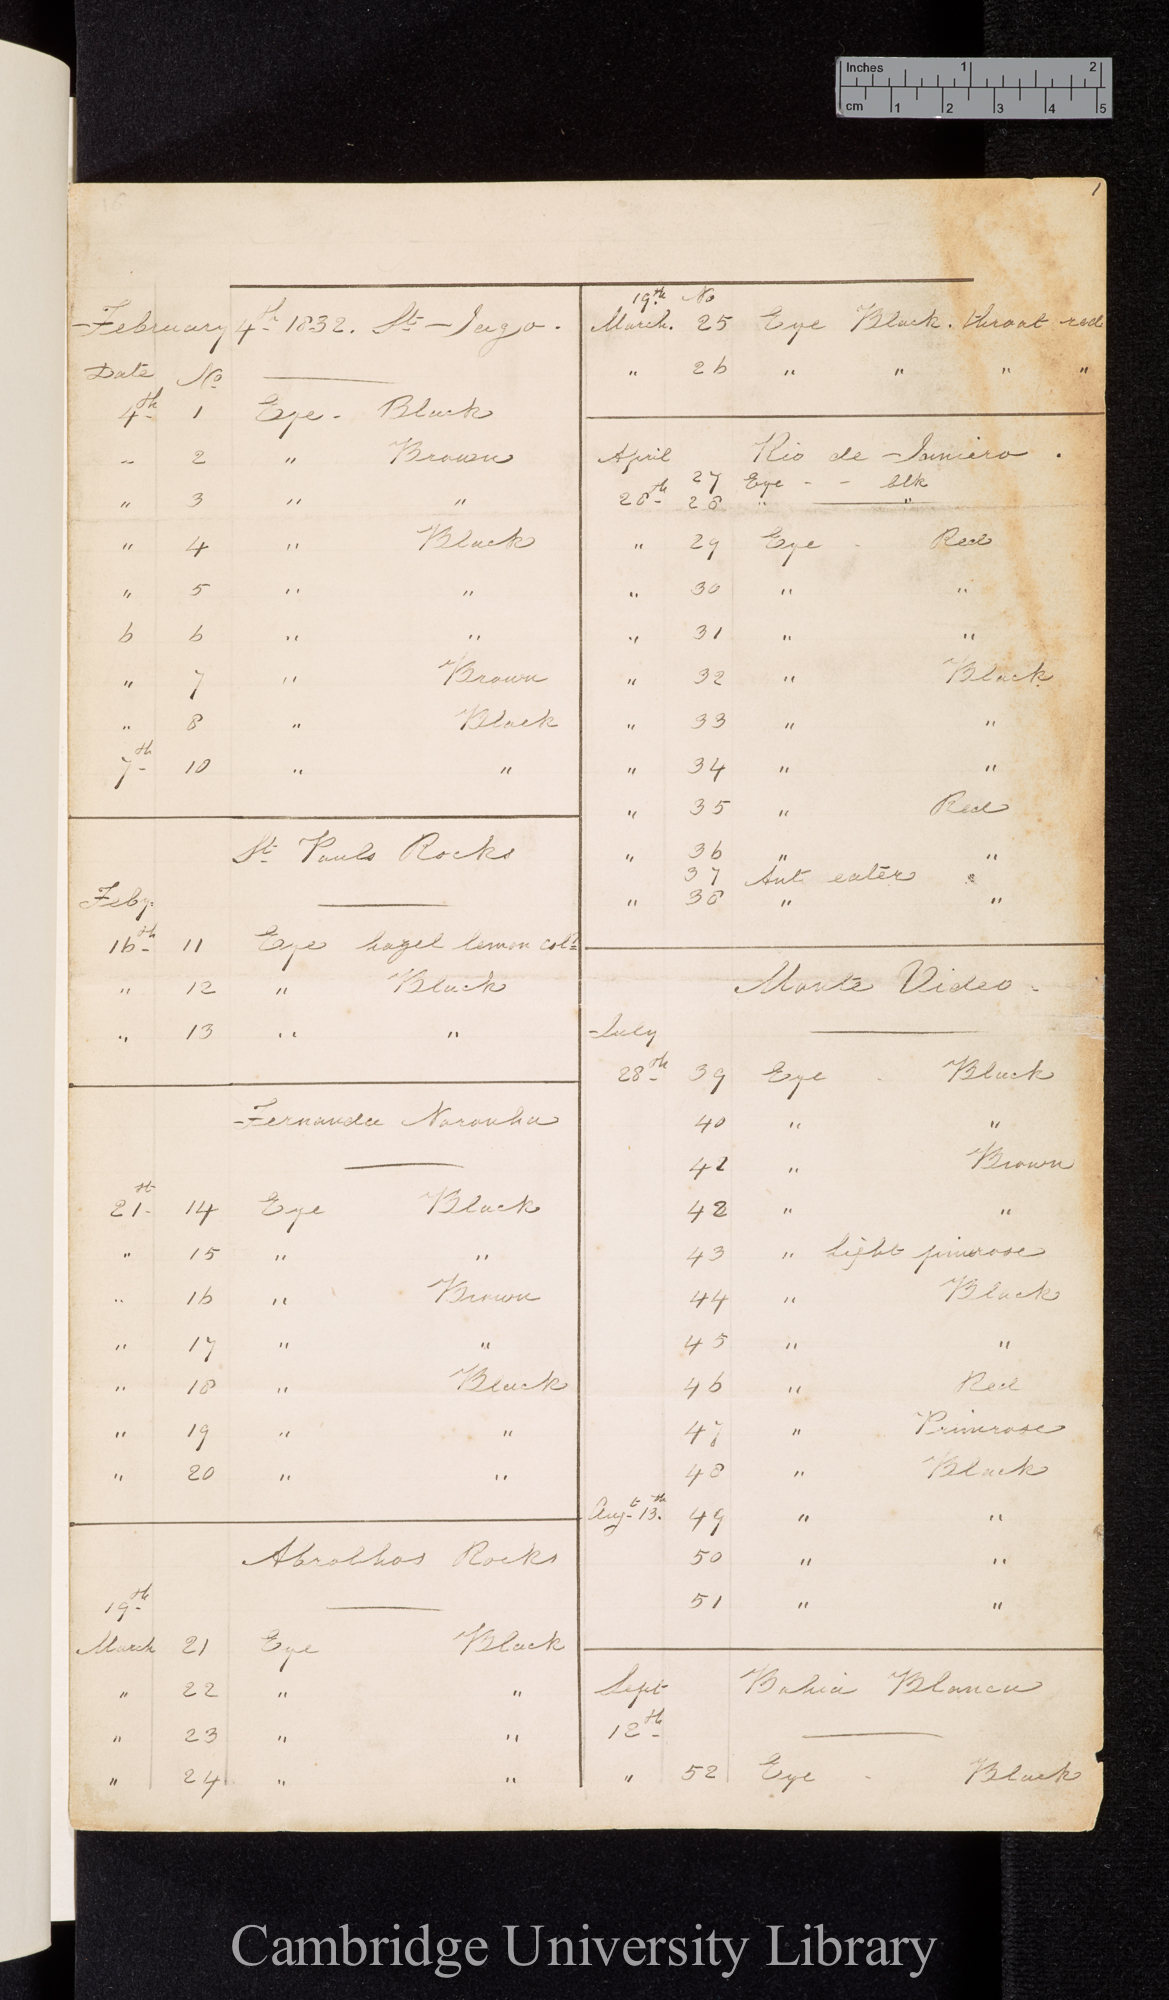 Inches 1 2
cm 1 2 3 4 5
1
February 4th 1832. St Iago.
Date No
4th 1 Eye - Black
" 2 " Brown
" 3 " "
" 4 " Black
" 5 " "
6 6 " "
" 7 " Brown
" 8 " Black
7th 10 " "
St Pauls Rocks
Feby
16th 11 Eye hazel lemon colr
" 12 " Black
" 13 " "
Fernanda Noronha
21st 14 Eye Black
" 15 " "
" 16 " Brown
" 17 " "
" 18 " Black
" 19 " "
" 20 " "
Abrolhos Rocks
19th
March 21 Eye Black
" 22 " "
" 23 " "
" 24 " "
19th No
March. 25 Eye Black. throat red
" 26 " " " "
April Rio de Janiero.
27 Eye - - blk
28th 28 " "
" 29 Eye - Red
" 30 " "
" 31 " "
" 32 " Black
" 33 " "
" 34 " "
" 35 " Red
" 36 " "
37 Ant eater "
" 38 " "
Monte Video -
July
28th 39 Eye - Black
40 " "
41 " Brown
42 " "
43 " light pimrose
44 " Black
45 " "
46 " Red
47 " Primrose
48 " Black
Augt 13th 49 " "
50 " "
51 " "
Sept Bahia Blanca
12th
" 52 Eye - Black
Cambridge University Library